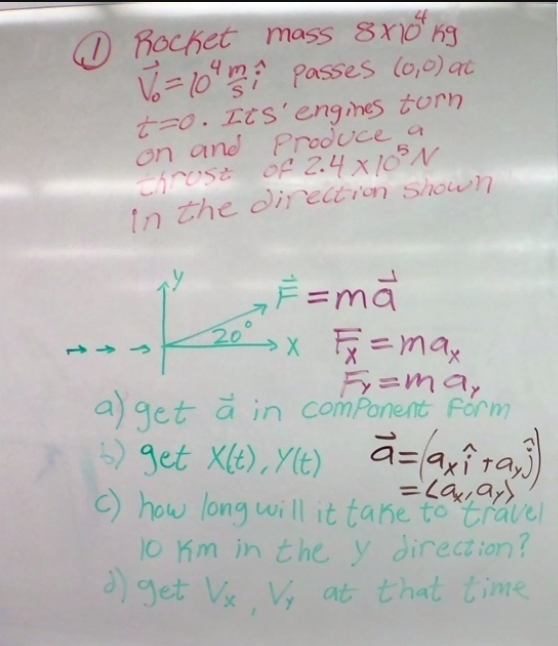 ① Rocket mass 8x10⁴ Kg
V⃗₀=10⁴ m/s î passes (0,0) at
t=0. Its' engines turn
on and Produce a
thrust of 2.4x10⁵ N
In the direction shown
y
F⃗ = ma⃗
20°
x
Fₓ = maₓ
Fᵧ = maᵧ
a) get a⃗ in component form
b) get X(t), Y(t) a⃗ = (aₓî + aᵧĵ)
= <aₓ, aᵧ>
c) how long will it take to travel
10 Km in the y direction?
d) get Vₓ, Vᵧ at that time